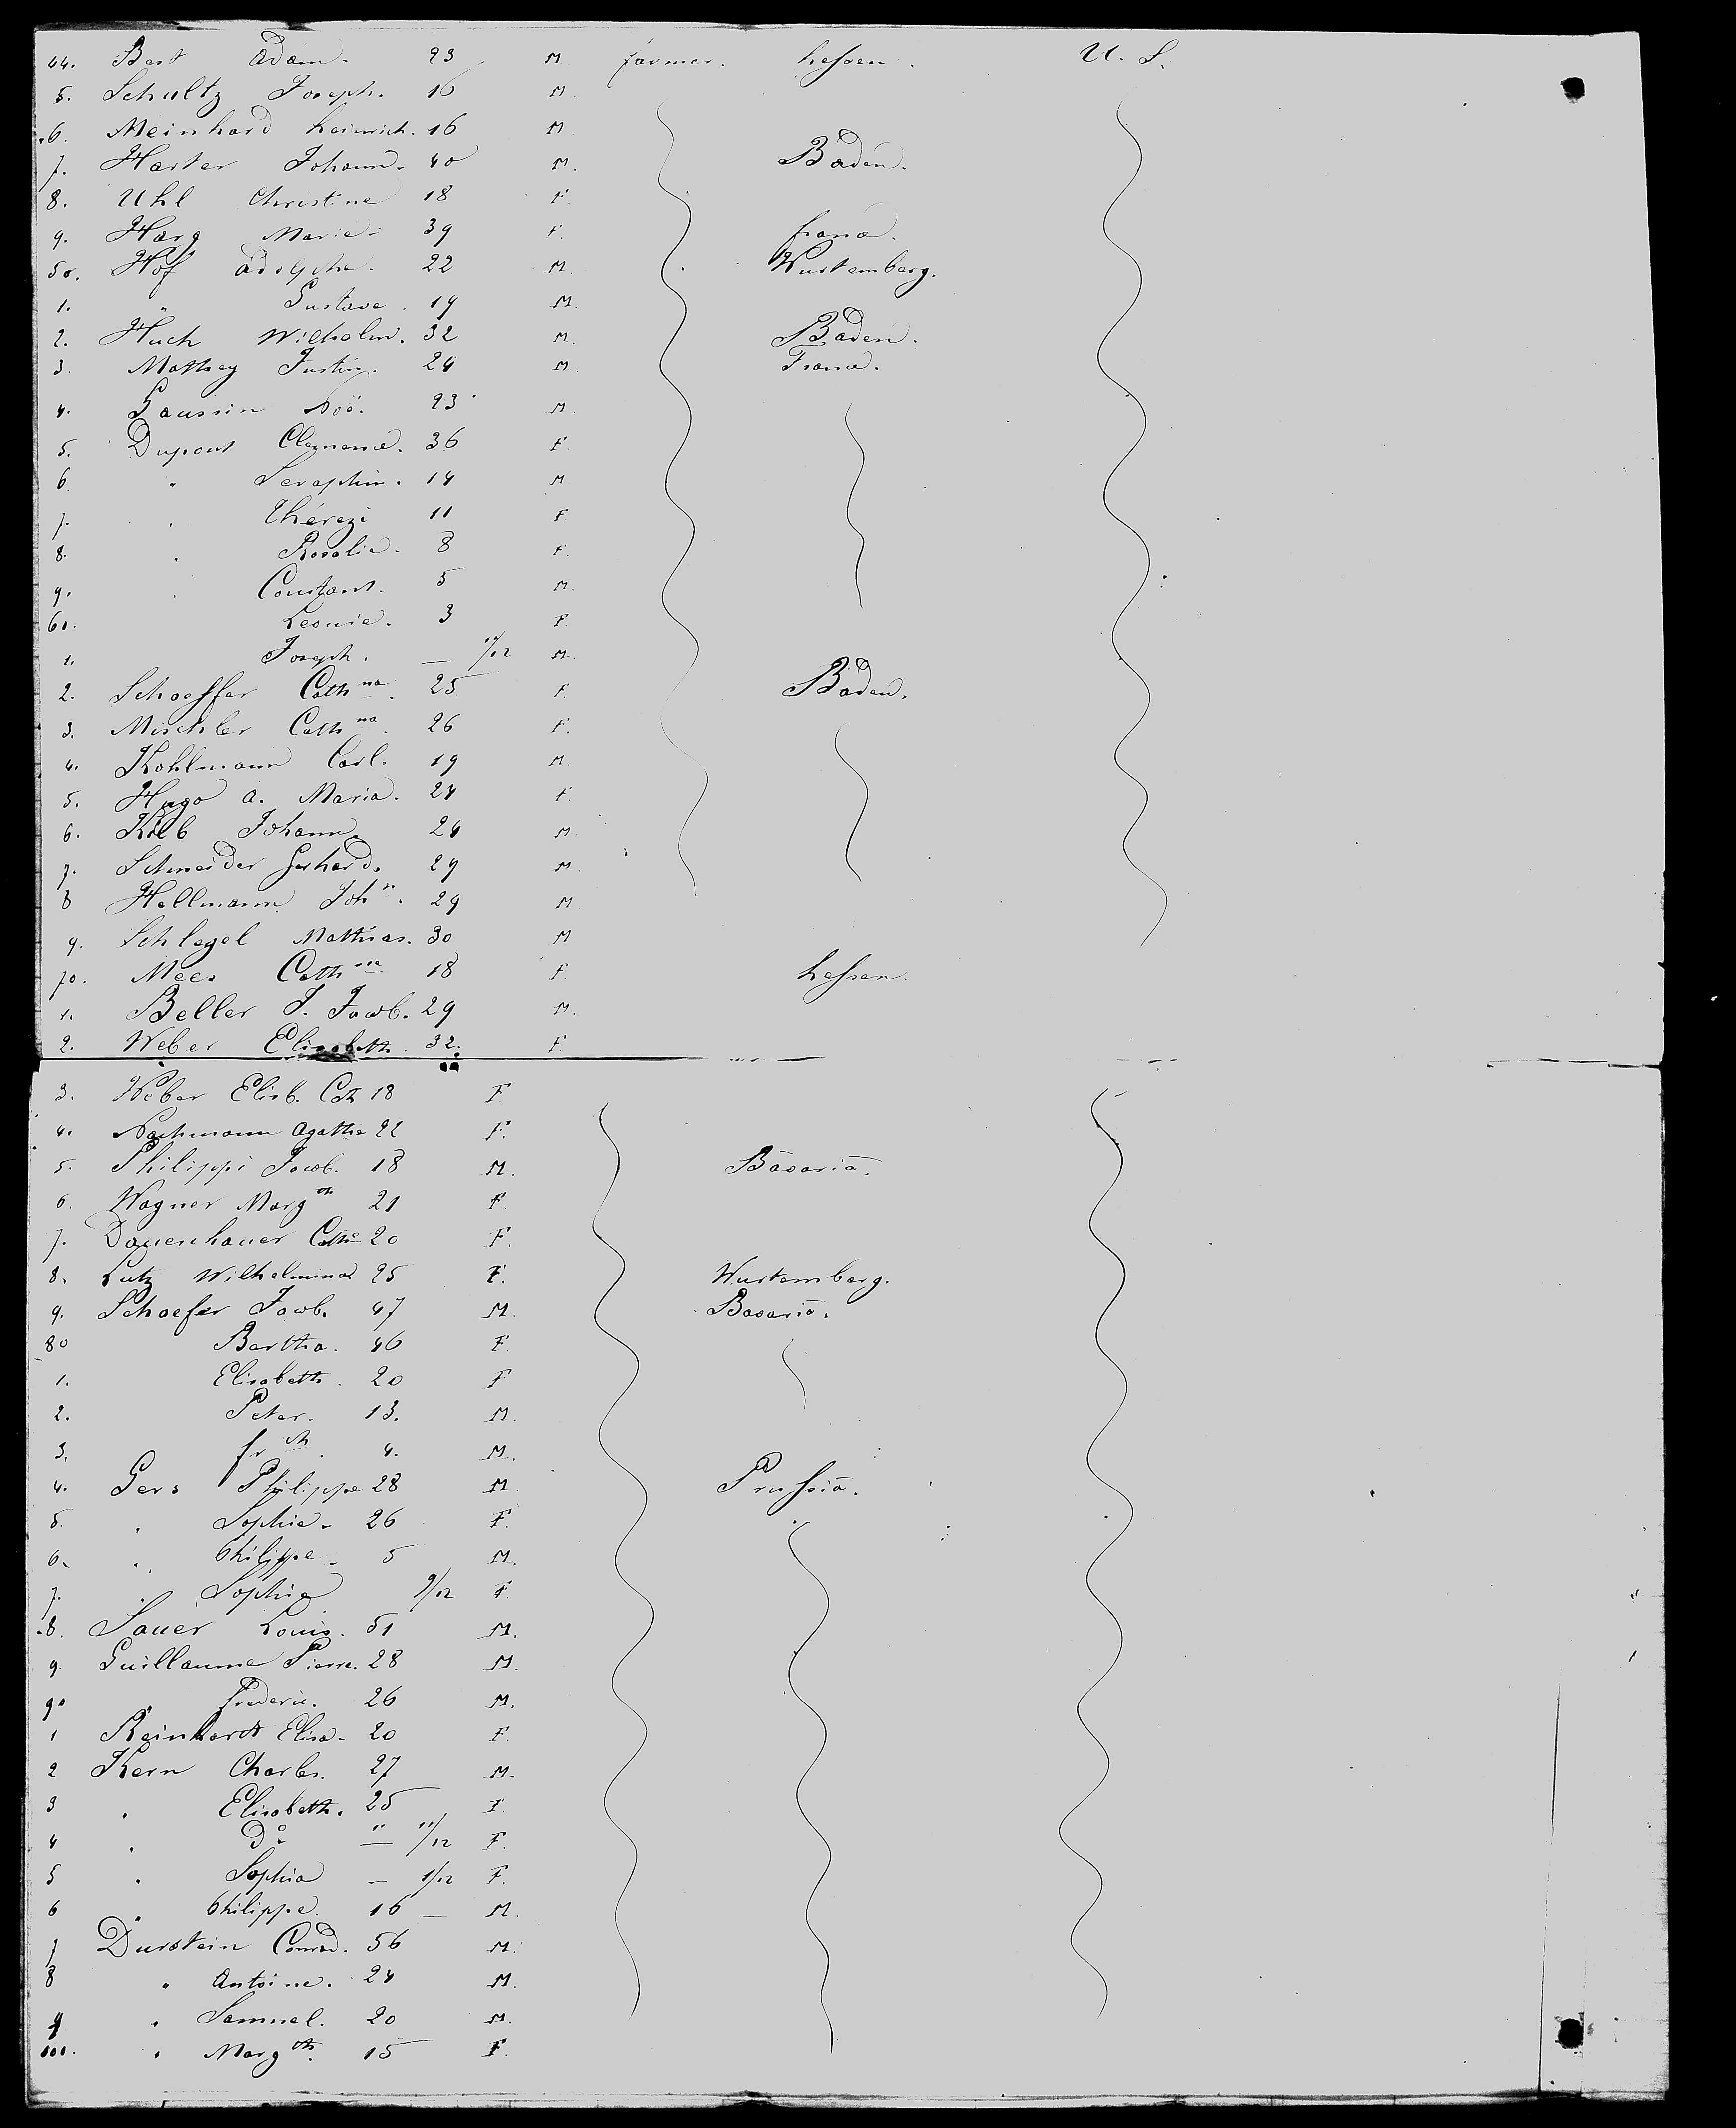 44. Best Adam. 23 M farmer. hessen. U. S.
5. Schultz Joseph. 16 M.
6. Meinhard heinrich. 16 M
7. Harter Johann. 40 M. Baden.
8. Uhl Christine 18 F.
9. Harg Marie 39 F. france.
50. Hof Adolphe. 22 M. Wurtemberg.
1. " Gustave. 19 M.
2. Huch Wilhelm. 32 M. Baden.
3. Mathey Justin. 24 M. France.
4. Gaussin Noé. 23 M.
5. Dupont Clemence. 36 F.
6. " Seraphin. 14 M
7. " Thérezi 11 F
8. " Rosalie. 8 F.
9. " Constant. 5 M.
60. Leonie. 3 F.
1. Joseph. — 10/12 M.
2. Schaeffer Cathna. 25 F. Baden.
3. Mischler Cathna. 26 F.
4. Kohlmann Carl. 19 M
5. Hugo A. Maria. 24 F.
6. Kolb Johann. 24 M.
7. Schneider Gerhard. 29 M.
8 Hellmann John. 29 M
9. Schlegel Mathias. 30 M
70. Mees Cathne 18 F. hessen.
1. Beller J. Jacob. 29 M.
2. Weber Elisabeth. 32. F.
3. Weber Elisb. Cath 18 F.
4. Nachmann Agathe 22 F.
5. Philippi Jacob. 18 M. Bavaria.
6. Wagner Margth 21 F.
7. Dauenhauer Cathe 20 F.
8. Lutz Wilhelmina 25 F. Wurtemberg.
9. Schaefer Jacob. 47 M. Bavaria.
80 Bertha. 46 F.
1. Elisabeth. 20 F
2. Peter. 13. M.
3. frch. 4. M.
4. Gers Philippe 28 M. Prussia.
5. " Sophie. 26 F.
6. " Philippe. 5 M.
7. " Sophie 9/12 F.
8. Sauer Louis. 51 M.
9. Guillaume Pierre. 28 M.
90 " frederic. 26 M.
1 Reinhardt Elisa. 20 F.
2 Kern Charles. 27 M.
3 " Elisabeth. 25 F
4 " Do " — 11/12 F.
5 " Sophia — 1/12 F.
6 " Philippe. 16 — M
7 Durstein Conrad. 56 M.
8 " Antoine. 24 M.
9 " Samuel. 20 M.
100. " Margth. 15 F.